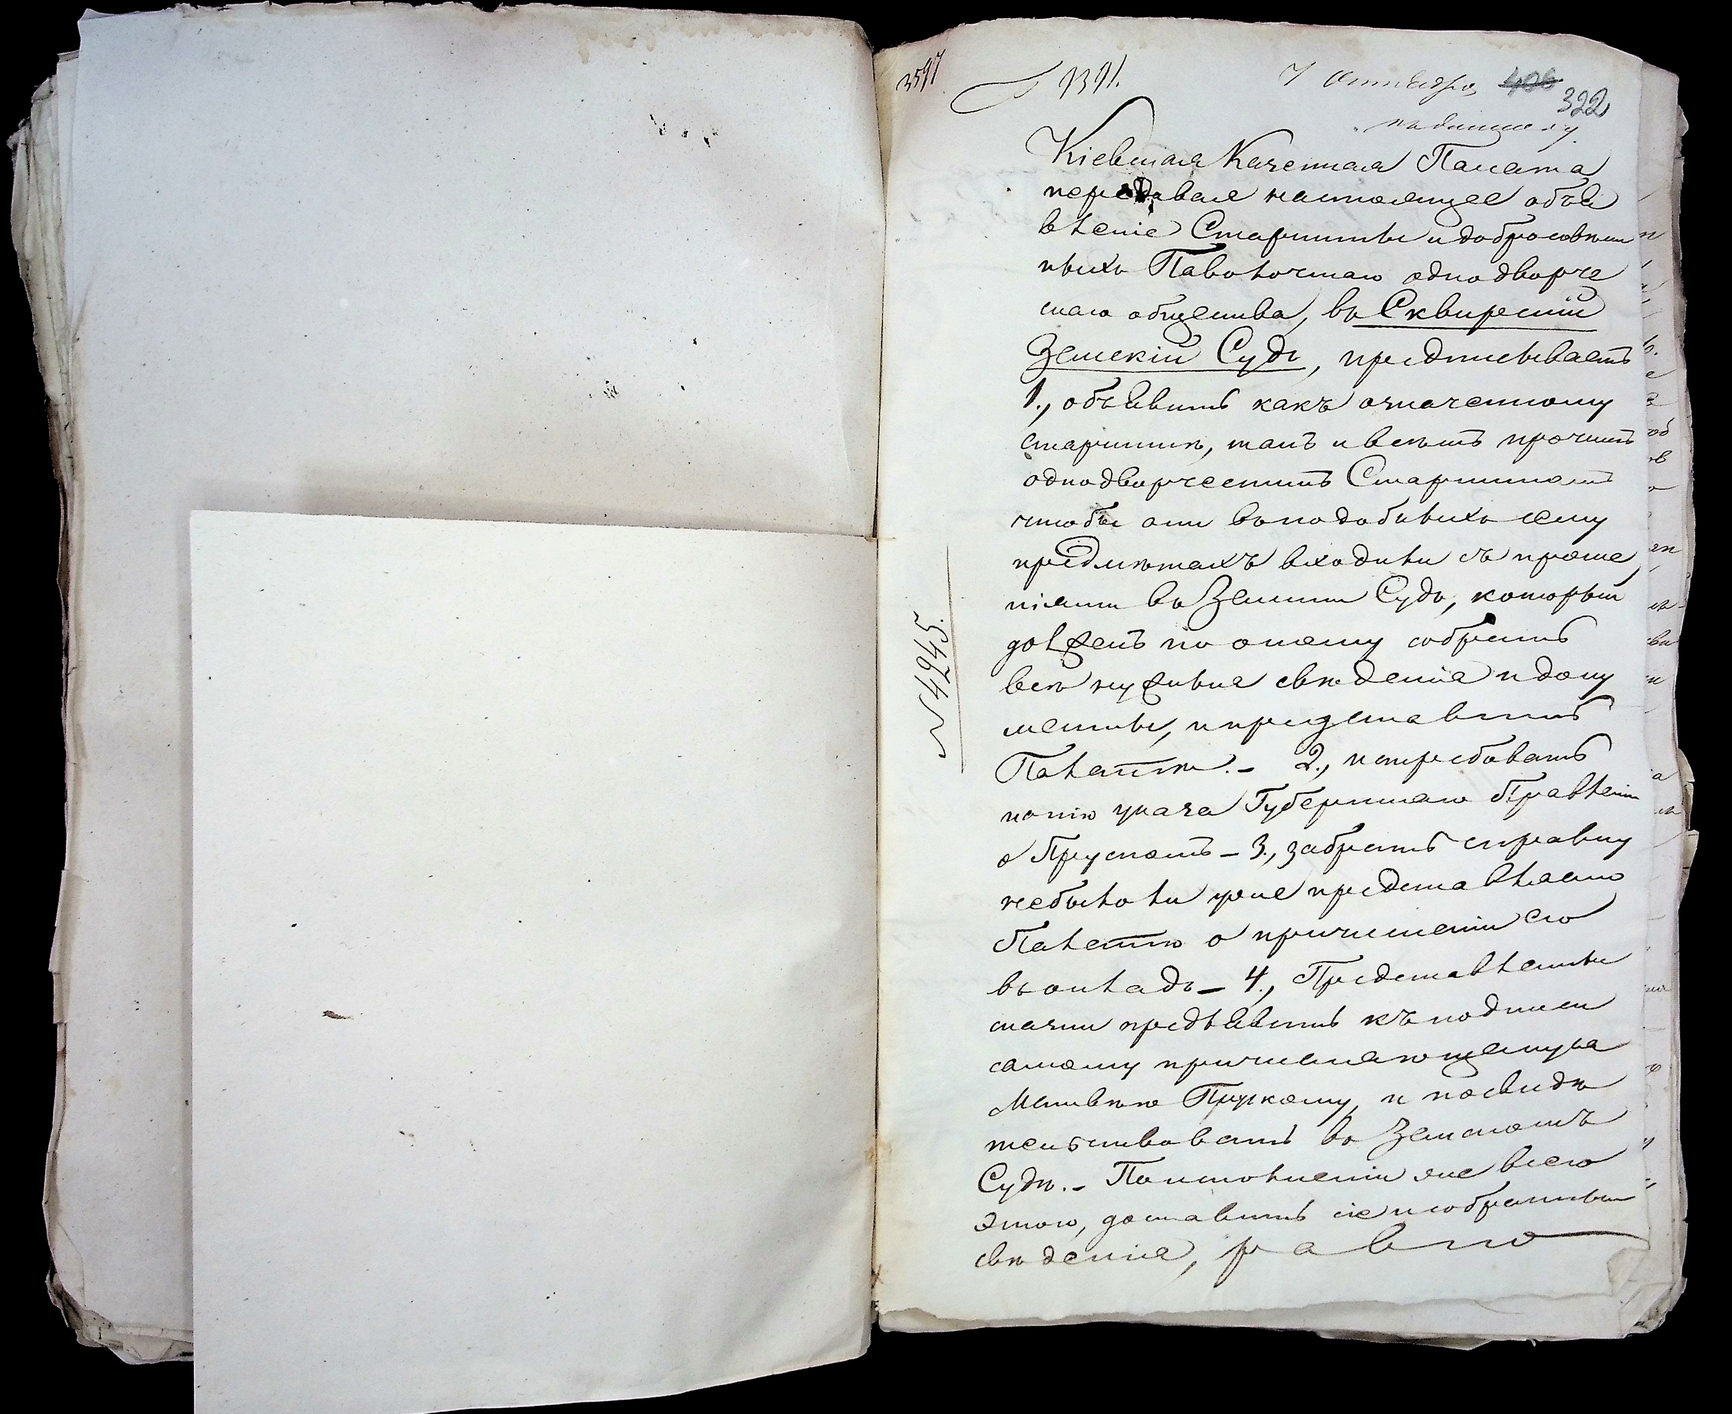 3597
9391.
7 Октября
406
322
Кіевская Казенная Палата
передавая настоящее объя
вленіе Старшины и добросовѣст
ныхъ Паволочскаго однодворче
скаго общества, въ Сквирскій
Земскій Судъ, предписываетъ
1., объявить какъ означенному
старшинѣ, такъ и всѣмъ прочимъ
однодворческимъ Старшинамъ
чтобы они въ подобныхъ сему
предметахъ входили съ проше
ніями въ Земскій Судъ, который
долженъ по оному собрать
всѣ нужныя свѣденія и доку
менты, и представить
Палатѣ. – 2., истребовать
копію указа Губернскаго Правленія
о Прускомъ – 3., забрать справку
небыло ли уже представляемо
Палатѣ о причисленіи его
въ окладъ – 4., Представленные
сказки предъявить къ подписи
самому причисляющемуся
Матвѣю Прускому, и посвидѣ
тельствовать въ Земскомъ
Судѣ. – По исполненіи же всего
этого, доставить сіе и собранныя
свѣденія, равно
№ 4245.